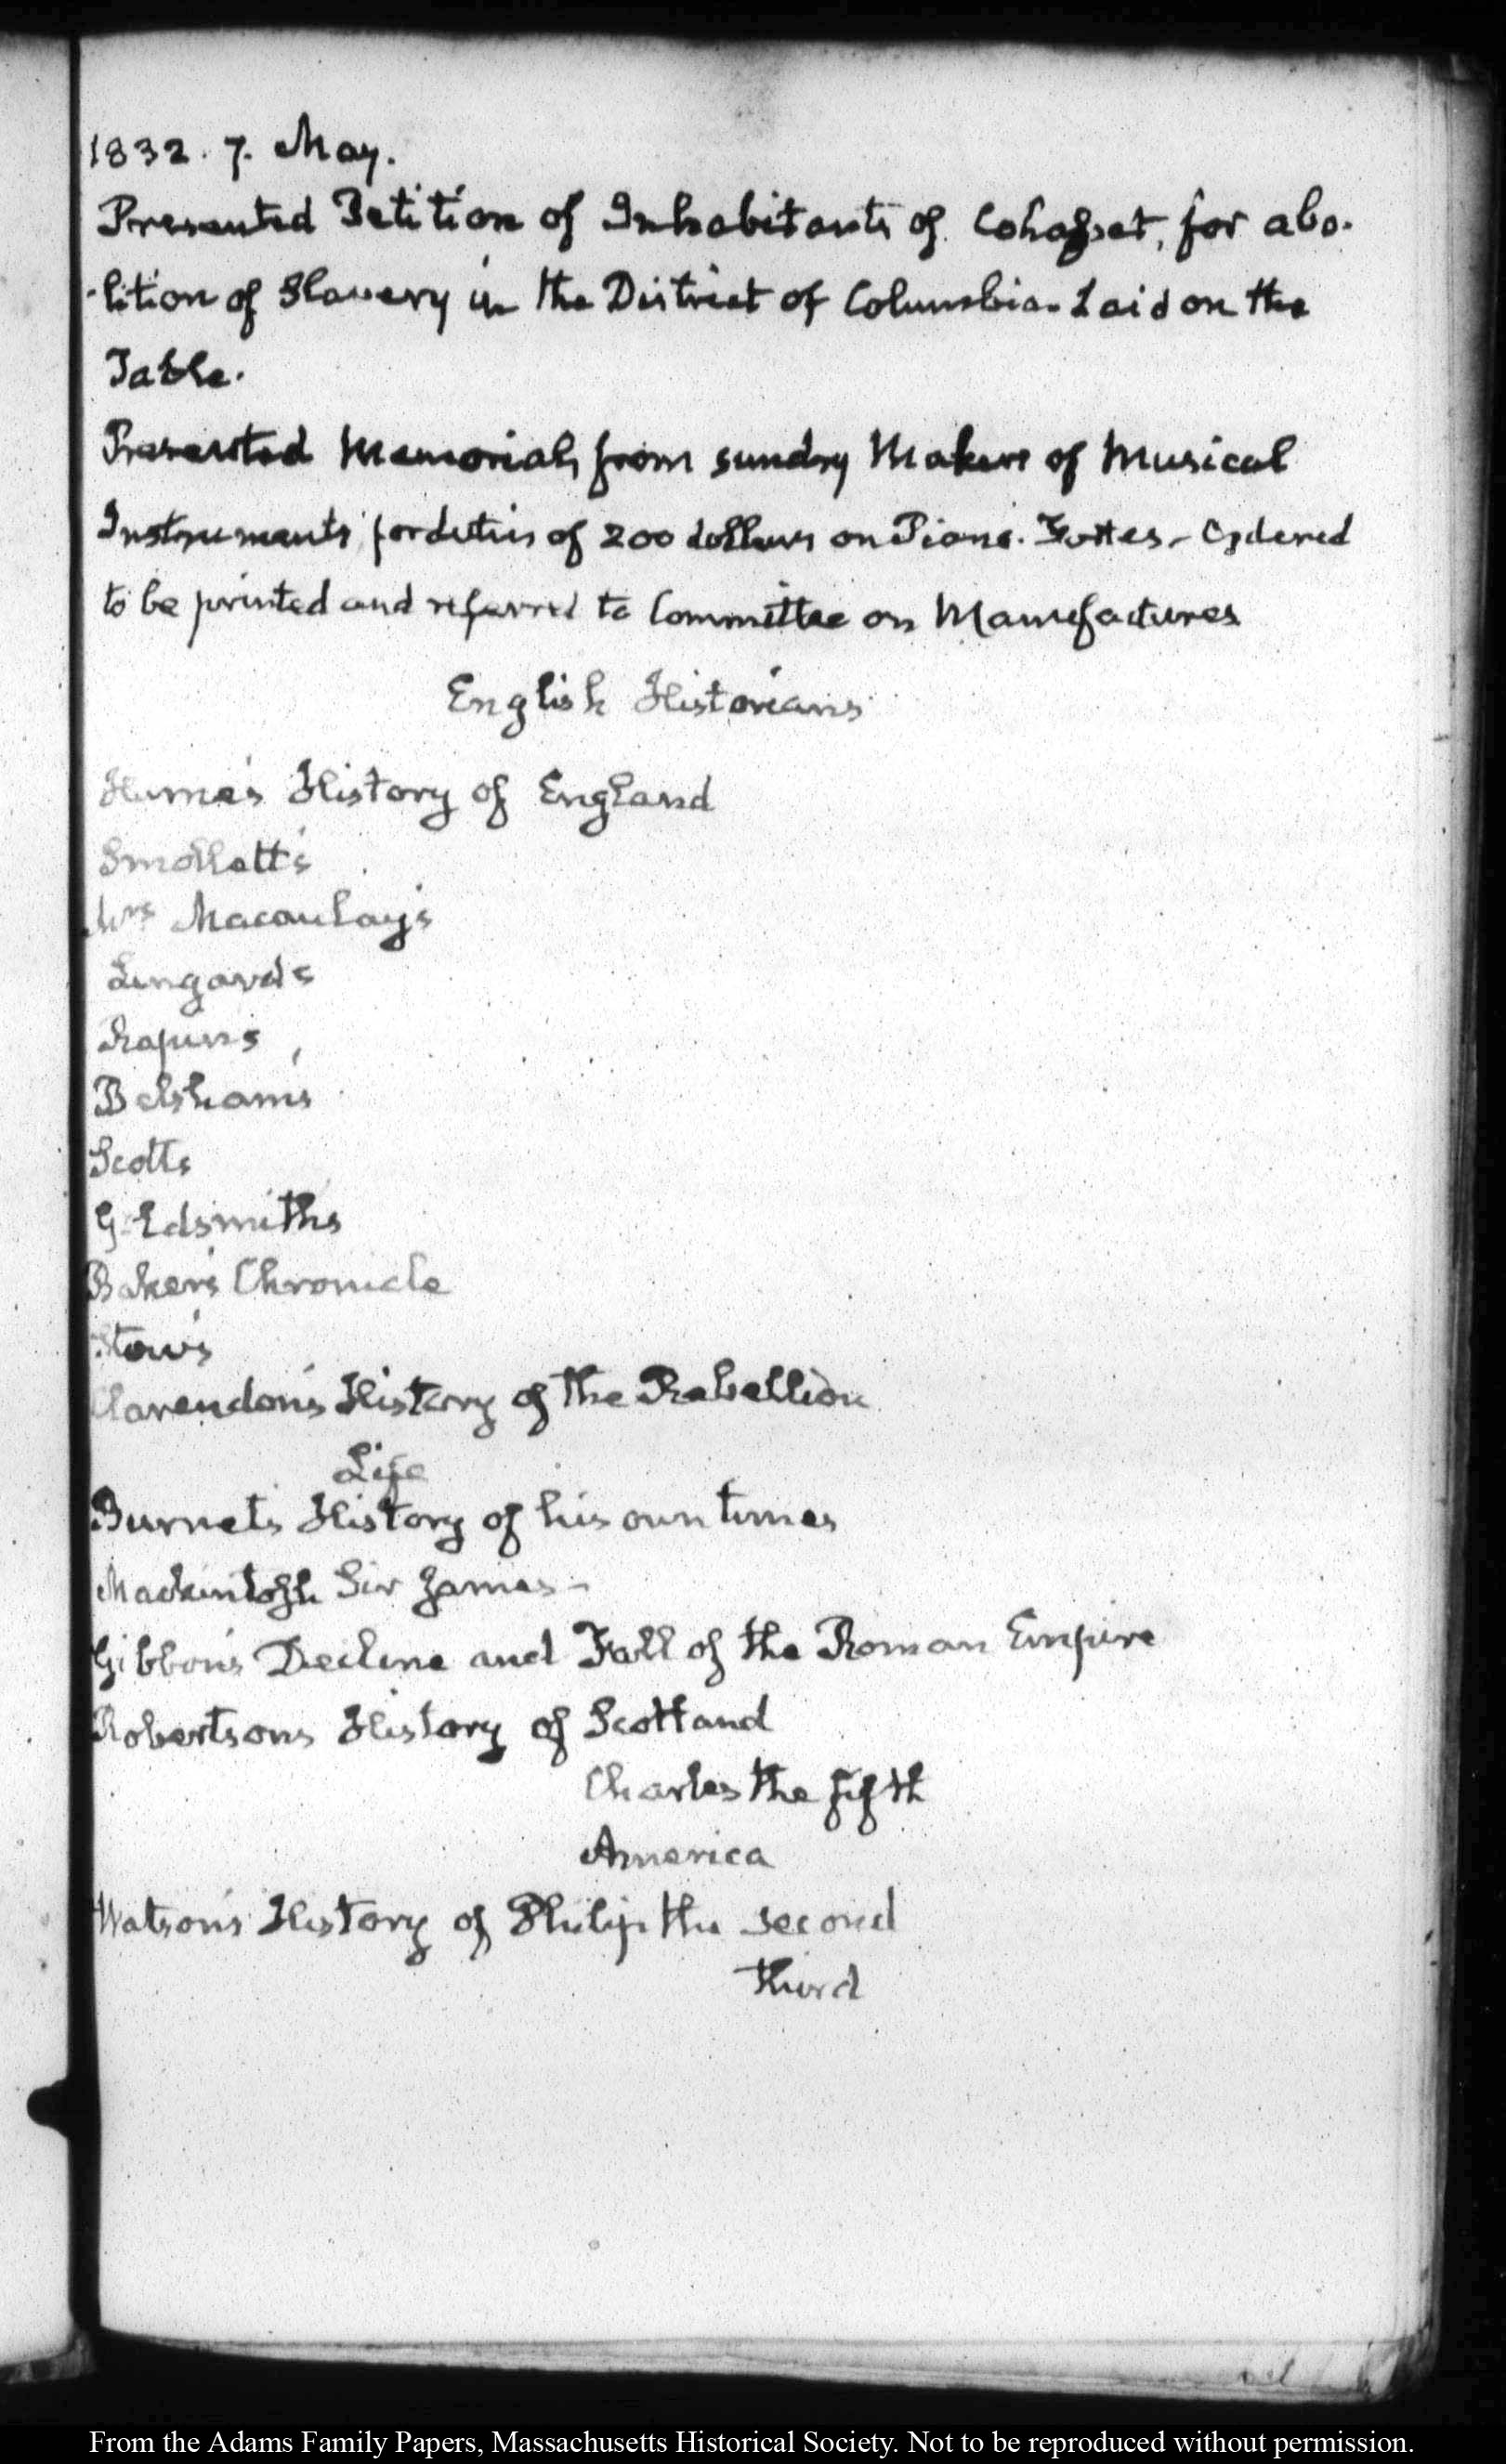 1832. 7. May.
Presented Petition of Inhabitants of Cohasset, for abo-
-lition of Slavery in the District of Columbia. Laid on the
Table.
Presented Memorial, from sundry Makers of Musical
Instruments for duties of 200 dollars on Piano-Fortes. Ordered
to be printed and referred to Committee on Manufactures
English Historians
Hume's History of England
Smollett's
Mrs Macaulay's
Lingard's
Rapin's
Belsham's
Scotts
Goldsmiths
Baker's Chronicle
Stow's
Clarendon's History of the Rebellion
Life
Burnet's History of his own times
Mackintosh Sir James-
Gibbon's Decline and Fall of the Roman Empire
Robertsons History of Scotland
Charles the fifth
America
Watson's History of Philip the second
third
From the Adams Family Papers, Massachusetts Historical Society. Not to be reproduced without permission.